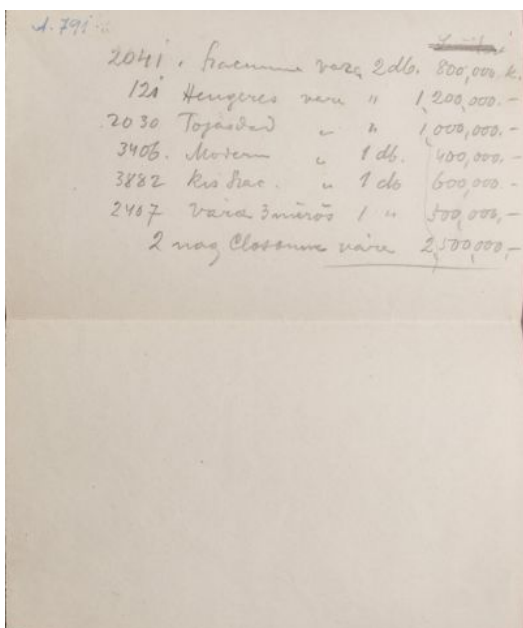 A. 791
2041. Sacuma váza 2 db. 800,000 k.
121 Hengeres váza " 1,200,000.-
2030 Tojásdad " " 1,000,000.-
3406. Modern " 1 db. 400,000.-
3882 Kis Sac. " 1 db 600,000.-
2407 Váza 3 műrős 1 " 500,000,-
2 nag Closonne váza 2,500,000,-